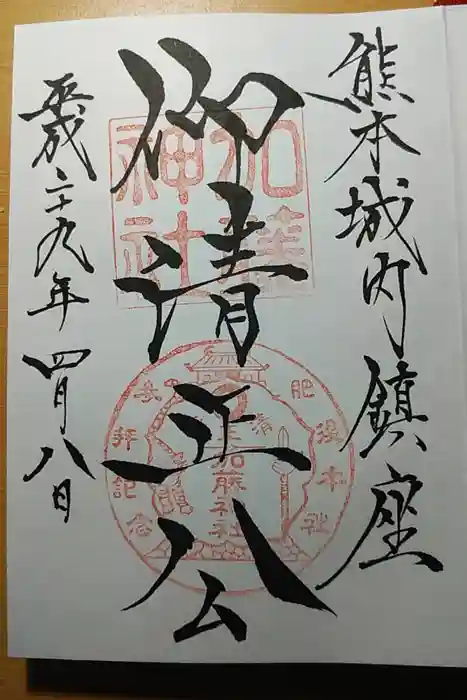 熊本城内鎮座
仰清正公
平成二十九年四月八日
加藤
神社
肥後本社
参拝記念
加藤神社